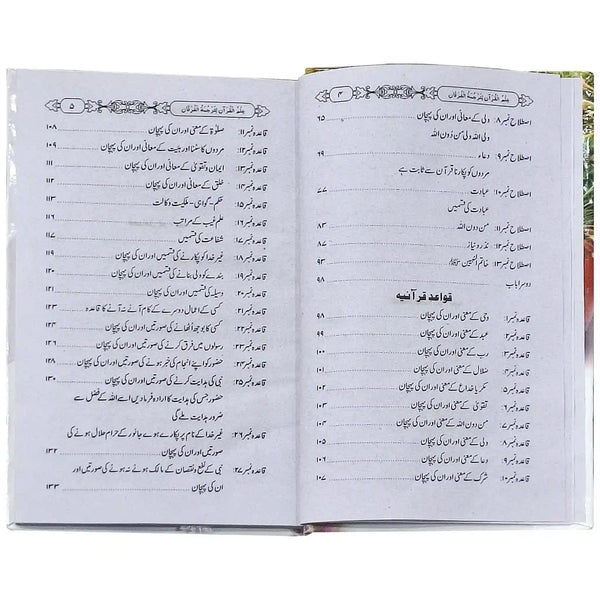 علم القرآن لترجمۃ الفرقان
۴
اصطلاح نمبر ۸: ولی کے معانی اور ان کی پہچان ۶۵
ولی اللہ ولی من دون اللہ
اصطلاح نمبر ۹: دعاء ۶۹
مردوں کو پکارنا قرآن سے ثابت ہے
اصطلاح نمبر ۱۰: عبادت ۷۷
عبادت کی قسمیں
اصطلاح نمبر ۱۱: من دون اللہ ۸۳
اصطلاح نمبر ۱۲: نذر و نیاز ۸۷
اصطلاح نمبر ۱۳: خاتم النبیین ﷺ ۹۳
دوسرا باب ۹۸
قواعد قرآنیہ
قاعدہ نمبر ۱: وحی کے معنی اور ان کی پہچان ۹۸
قاعدہ نمبر ۲: عبد کے معنی اور ان کی پہچان ۹۹
قاعدہ نمبر ۳: رب کے معنی اور ان کی پہچان ۱۰۰
قاعدہ نمبر ۴: ضلال کے معنی اور ان کی پہچان ۱۰۱
قاعدہ نمبر ۵: مکر یا خداع کے معنی اور ان کی پہچان ۱۰۲
قاعدہ نمبر ۶: تقویٰ کے معنی اور ان کی پہچان ۱۰۳
قاعدہ نمبر ۷: من دون اللہ کے معنی اور ان کی پہچان ۱۰۴
قاعدہ نمبر ۸: ولی کے معنی اور ان کی پہچان ۱۰۵
قاعدہ نمبر ۹: دعا کے معنی اور ان کی پہچان ۱۰۶
قاعدہ نمبر ۱۰: شرک کے معنی اور ان کی پہچان ۱۰۷
علم القرآن لترجمۃ الفرقان
۵
قاعدہ نمبر ۱۱: صلوٰۃ کے معنی اور ان کی پہچان ۱۰۸
قاعدہ نمبر ۱۲: مردوں کا سننا اور میت کے معانی اور ان کی پہچان ۱۰۹
قاعدہ نمبر ۱۳: ایمان و تقویٰ کے معانی اور ان کی پہچان ۱۱۱
قاعدہ نمبر ۱۴: خلق کے معانی اور ان کی پہچان ۱۱۲
قاعدہ نمبر ۱۵: حکم - گواہی - ملکیت و کالت ۱۱۳
قاعدہ نمبر ۱۶: علم غیب کے مراتب ۱۱۶
قاعدہ نمبر ۱۷: شفاعت کی قسمیں ۱۱۷
قاعدہ نمبر ۱۸: غیر خدا کو پکارنے کی قسمیں اور ان کی پہچان ۱۱۹
قاعدہ نمبر ۱۹: بندے کو ولی بنانے کی قسمیں اور ان کی پہچان ۱۲۰
قاعدہ نمبر ۲۰: وسیلہ کی قسمیں اور ان کی پہچان ۱۲۱
قاعدہ نمبر ۲۱: کسی کے اعمال دوسرے کے کام آنے نہ آنے کا قاعدہ ۱۲۳
قاعدہ نمبر ۲۲: کسی کا بوجھ اٹھانے کی صورتیں اور ان کی پہچان
قاعدہ نمبر ۲۳: رسولوں میں فرق کرنے کی صورتیں اور ان کی پہچان
قاعدہ نمبر ۲۴: حضور کو اپنے انجام کی خبر ہونے کی صورتیں اور ان کی پہچان
قاعدہ نمبر ۲۵: نبی کی ہدایت کرنے کی صورتیں اور ان کی پہچان ۱۳۰
حضور جس کی ہدایت کا ارادہ فرما دیں اسے اللہ کے فضل سے
ضرور ہدایت ملے گی
قاعدہ نمبر ۲۶: غیر خدا کے نام پر پکارے ہوئے جانور کے حرام حلال ہونے کی
صورتیں اور ان کی پہچان ۱۳۲
قاعدہ نمبر ۲۷: نبی کے نفع و نقصان کے مالک ہونے نہ ہونے کی صورتیں اور
ان کی پہچان ۱۳۳